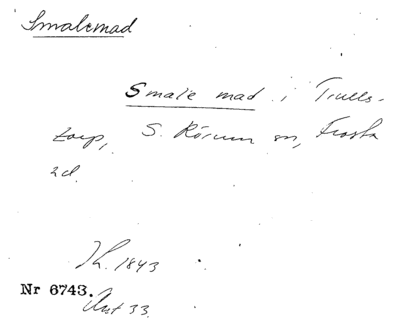 Smalemad
Smale mad i Trulls-
torp, S. Rörum sn, Frosta
hd.
Th. 1843
Nr 6743.
Ant 33.